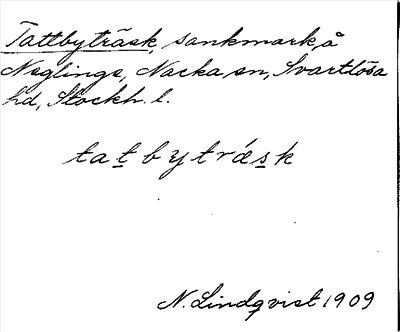 Tattbyträsk, sankmark, å
Neglinge, Nacka sn, Svartlösa
hd, Stockh. l.
tatbyträsk
N. Lindqvist 1909